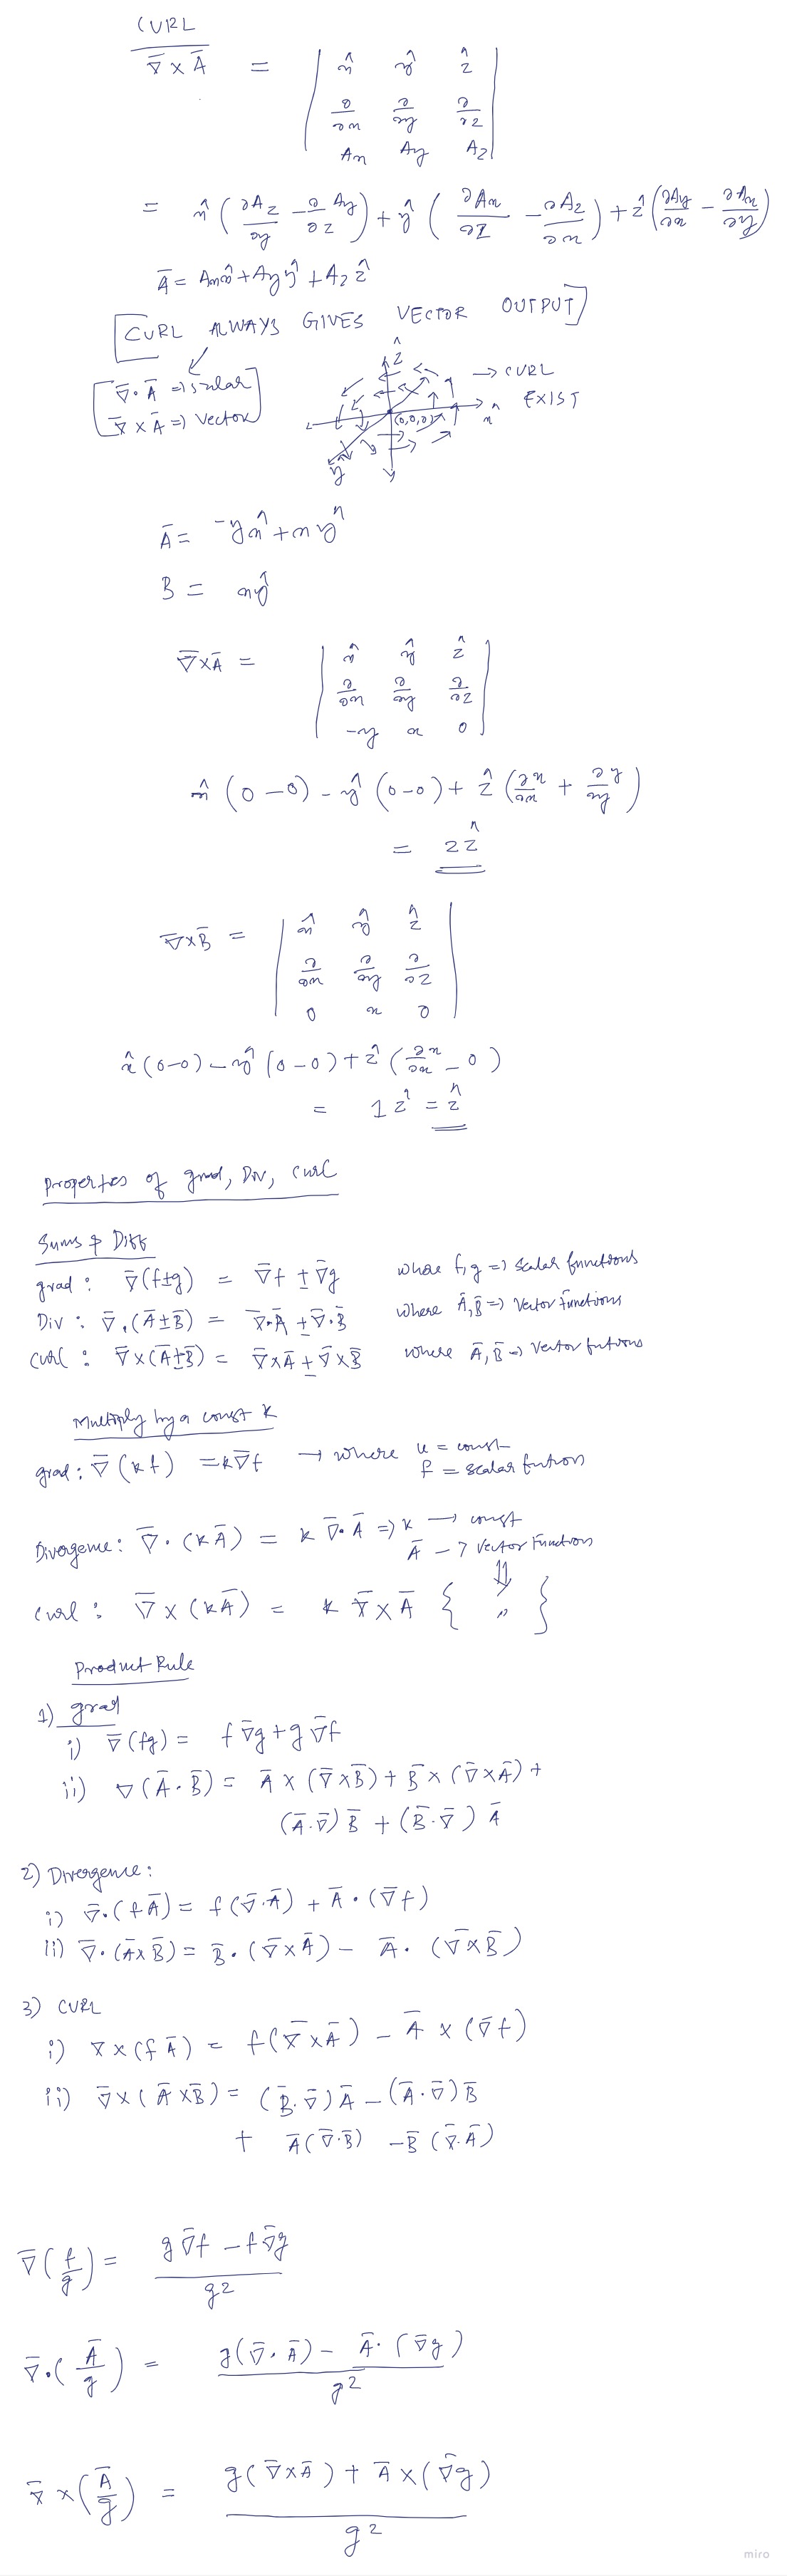 CURL
∇̄ × Ā = | x̂ ŷ ẑ |
| ∂/∂x ∂/∂y ∂/∂z |
| Ax Ay Az |
= x̂ (∂Az/∂y - ∂Ay/∂z) + ŷ (∂Ax/∂z - ∂Az/∂x) + ẑ (∂Ay/∂x - ∂Ax/∂y)
Ā = Ax x̂ + Ay ŷ + Az ẑ
[CURL ALWAYS GIVES VECTOR OUTPUT]
∇̄ · Ā => scalar
∇̄ × Ā => Vector
ẑ
→ CURL
EXIST
x̂
(0,0,0)
ŷ
Ā = -y x̂ + x ŷ
B = x ŷ
∇̄ × Ā = | x̂ ŷ ẑ |
| ∂/∂x ∂/∂y ∂/∂z |
| -y x 0 |
x̂ (0 - 0) - ŷ (0 - 0) + ẑ (∂x/∂x + ∂y/∂y)
= 2ẑ
∇̄ × B̄ = | x̂ ŷ ẑ |
| ∂/∂x ∂/∂y ∂/∂z |
| 0 x 0 |
x̂ (0-0) - ŷ (0-0) + ẑ (∂x/∂x - 0)
= 1 ẑ = ẑ
Properties of grad, Div, Curl
Sums & Diff
grad : ∇̄(f±g) = ∇̄f ± ∇̄g where f,g => scalar functions
Div : ∇̄.(Ā±B̄) = ∇̄.Ā ± ∇̄.B̄ where Ā,B̄ => Vector Functions
Curl : ∇̄×(Ā±B̄) = ∇̄×Ā ± ∇̄×B̄ where Ā,B̄ => Vector funtions
Multiply by a const K
grad : ∇̄ (kf) = k∇̄f → where k = const
f = scalar funtions
Divergence : ∇̄ · (kĀ) = k ∇̄·Ā => k → const
Ā → Vector Functions
Curl : ∇̄ × (kĀ) = k ∇̄ × Ā { ⇓ " }
Product Rule
1) grad
i) ∇̄ (fg) = f ∇̄g + g ∇̄f
ii) ∇ (Ā · B̄) = Ā × (∇̄×B̄) + B̄ × (∇̄×Ā) +
(Ā.∇̄) B̄ + (B̄.∇̄) Ā
2) Divergence :
i) ∇̄.(fĀ) = f(∇̄.Ā) + Ā · (∇̄f)
ii) ∇̄ · (Ā×B̄) = B̄ · (∇̄×Ā) - Ā · (∇̄×B̄)
3) CURL
i) ∇×(fĀ) = f(∇̄×Ā) - Ā × (∇̄f)
ii) ∇̄×(Ā×B̄) = (B̄.∇̄)Ā - (Ā.∇̄)B̄
+ Ā(∇̄.B̄) - B̄(∇̄.Ā)
∇̄(f/g) = (g∇̄f - f∇̄g) / g²
∇̄·(Ā/g) = (g(∇̄·Ā) - Ā·(∇̄g)) / g²
∇̄ × (Ā/g) = (g(∇̄×Ā) + Ā×(∇̄g)) / g²
miro